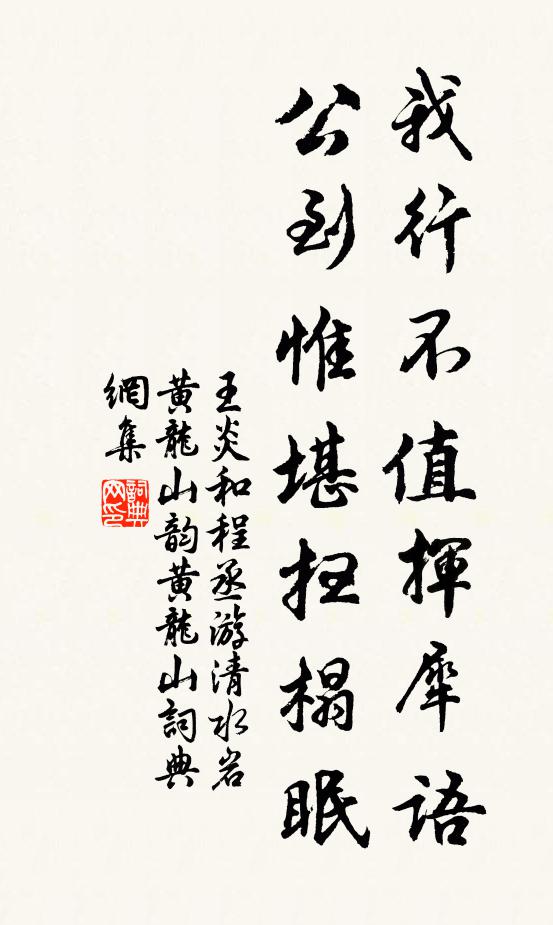 我行不值揮犀语
公到惟堪扫榻眠
王炎和程丞游清水岩
黄龍山韵黄龍山詞典
網集
詞典网印